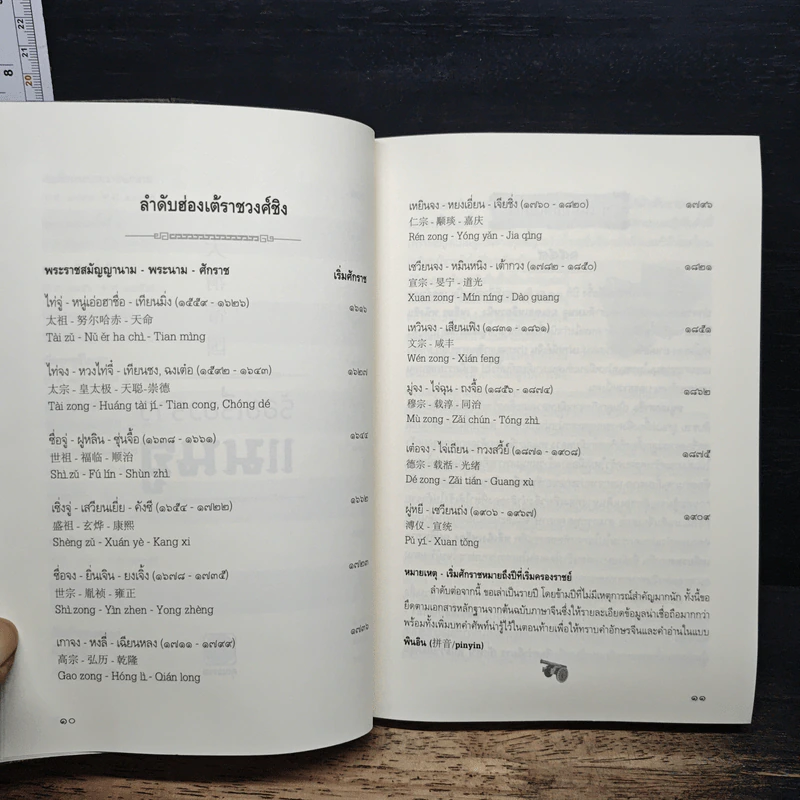 8
22
21
20
ลำดับฮ่องเต้ราชวงศ์ชิง
พระราชสมัญญานาม - พระนาม - ศักราช เริ่มศักราช
ไท่จู่ - หนู่เอ่อฮาชื่อ - เทียนมิ่ง (๑๕๕๙ - ๑๖๒๖) ๑๖๑๖
太祖 - 努尔哈赤 - 天命
Tài zǔ - Nǔ ěr ha chì - Tian mìng
ไท่จง - หวงไท่จี๋ - เทียนชง, ฉงเต๋อ (๑๕๙๒ - ๑๖๔๓) ๑๖๒๗
太宗 - 皇太极 - 天聪-崇德
Tài zong - Huáng tài jí - Tian cong, Chóng dé
ซื่อจู่ - ฝูหลิน - ซุ่นจื้อ (๑๖๓๘ - ๑๖๖๑) ๑๖๔๔
世祖 - 福临 - 顺治
Shì zǔ - Fú lín - Shùn zhì
เซิ่งจู่ - เสวียนเยี่ย - คังซี (๑๖๕๔ - ๑๗๒๒) ๑๖๖๒
盛祖 - 玄烨 - 康熙
Shèng zǔ - Xuán yè - Kang xi
ซื่อจง - ยิ่นเจิน - ยงเจิ้ง (๑๖๗๘ - ๑๗๓๕) ๑๗๒๓
世宗 - 胤祯 - 雍正
Shì zong - Yìn zhen - Yong zhèng
เกาจง - หงลี่ - เฉียนหลง (๑๗๑๑ - ๑๗๙๙) ๑๗๓๖
高宗 - 弘历 - 乾隆
Gao zong - Hóng lì - Qián long
๑๐
เหยินจง - หยงเอี่ยน - เจียชิ่ง (๑๗๖๐ - ๑๘๒๐) ๑๗๙๖
仁宗 - 顒琰 - 嘉庆
Rén zong - Yóng yǎn - Jia qìng
เซวียนจง - หมินหนิง - เต้ากวง (๑๗๘๒ - ๑๘๕๐) ๑๘๒๑
宣宗 - 旻宁 - 道光
Xuan zong - Mín níng - Dào guang
เหวินจง - เสียนเฟิง (๑๘๓๑ - ๑๘๖๑) ๑๘๕๑
文宗 - 咸丰
Wén zong - Xián feng
มู่จง - ไจ่ฉุน - ถงจื้อ (๑๘๕๖ - ๑๘๗๔) ๑๘๖๒
穆宗 - 载淳 - 同治
Mù zong - Zǎi chún - Tóng zhì
เต๋อจง - ไจ่เถียน - กวงสวี้ย์ (๑๘๗๑ - ๑๙๐๘) ๑๘๗๕
德宗 - 载湉 - 光绪
Dé zong - Zǎi tián - Guang xù
ผู่หยี - เซวียนถ่ง (๑๙๐๖ - ๑๙๖๗) ๑๙๐๙
溥仪 - 宣统
Pǔ yí - Xuan tǒng
หมายเหตุ - เริ่มศักราชหมายถึงปีที่เริ่มครองราชย์
ลำดับต่อจากนี้ ขอเล่าเป็นรายปี โดยข้ามปีที่ไม่มีเหตุการณ์สำคัญมากนัก ทั้งนี้ขอ
ยึดตามเอกสารหลักฐานจากต้นฉบับภาษาจีนซึ่งให้รายละเอียดข้อมูลน่าเชื่อถือมากกว่า
พร้อมทั้งเพิ่มบทคำศัพท์น่ารู้ไว้ในตอนท้ายเพื่อให้ทราบคำอักษรจีนและคำอ่านในแบบ
พินอิน (拼音/pinyin)
๑๑